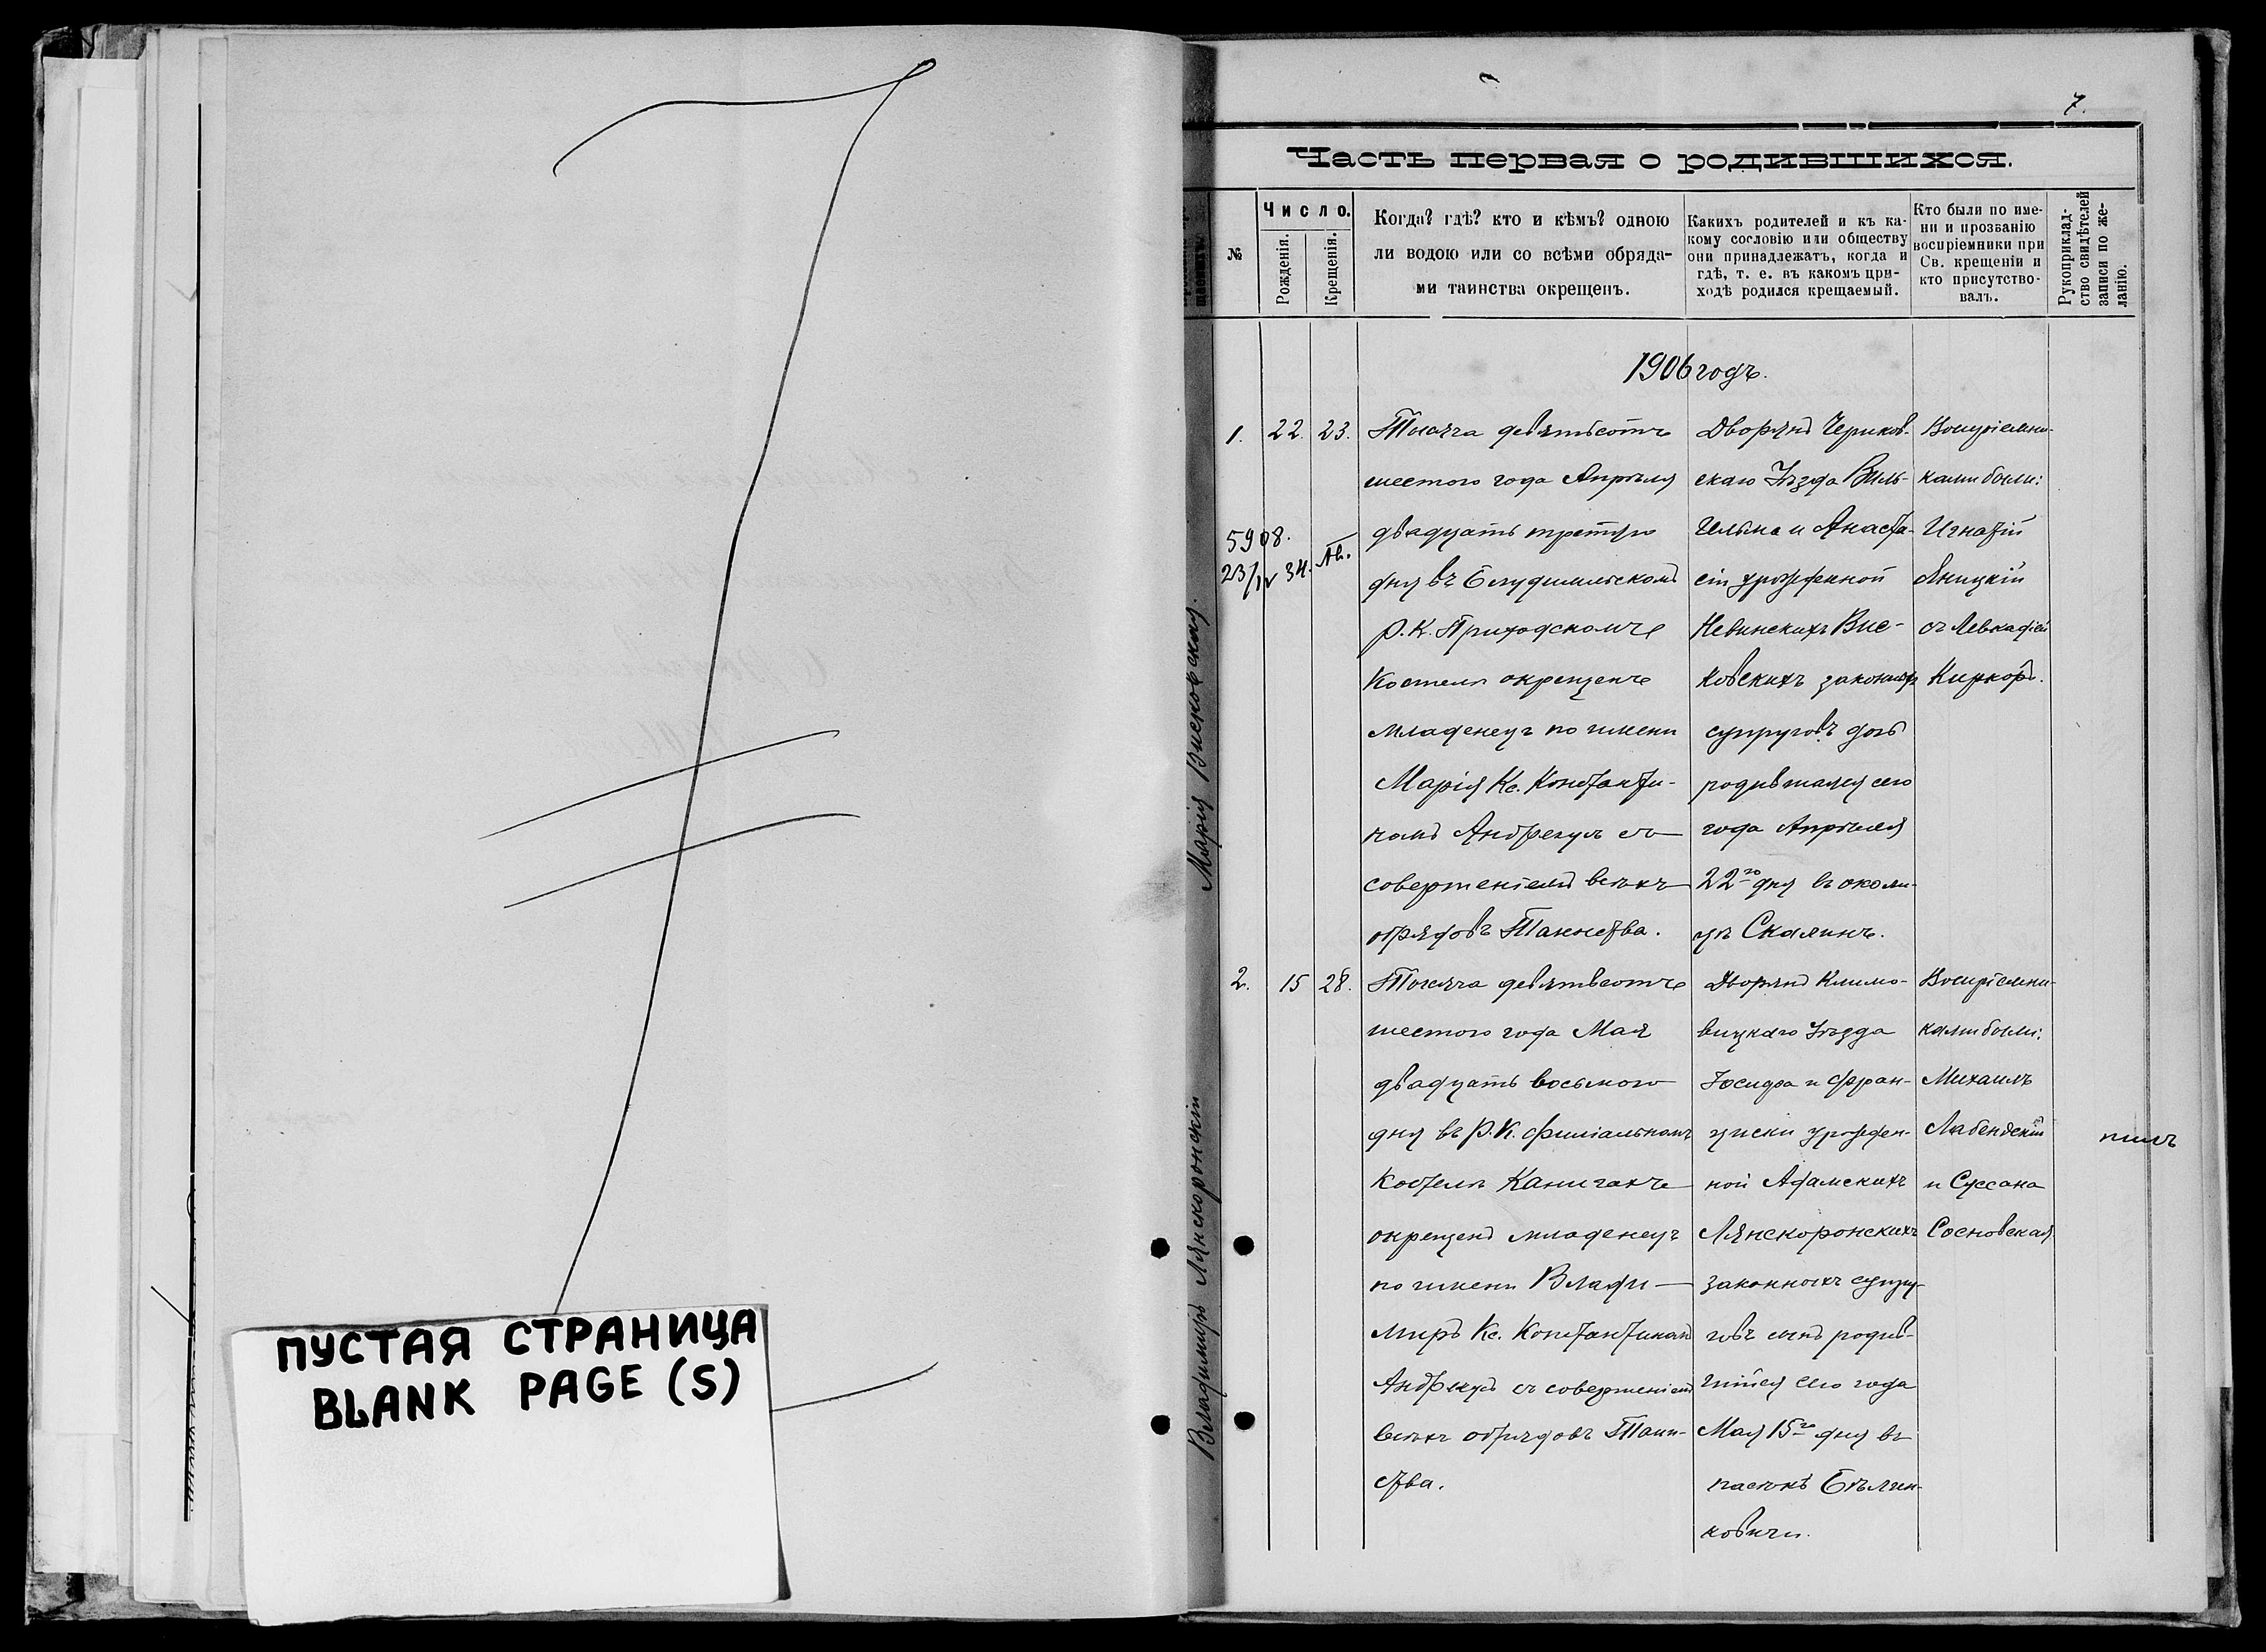 ПУСТАЯ СТРАНИЦА
BLANK PAGE (S)
7.
Часть первая о родившихся.
№
Число.
Рожденія.
Крещенія.
Когда? гдѣ? кто и кѣмъ? одною
ли водою или со всѣми обряда-
ми таинства окрещенъ.
Какихъ родителей и къ ка-
кому сословію или обществу
они принадлежатъ, когда и
гдѣ, т. е. въ какомъ при-
ходѣ родился крещаемый.
Кто были по име-
ни и прозванію
воспріемники при
Св. крещеніи и
кто присутство-
валъ.
Рукоприклад-
ство свидѣтелей
записи по же-
ланію.
1906 годъ.
Марія Висковская.
1. 22. 23.
5908.
23/IV 34.
Тысяча девятьсотъ
шестого года Апрѣля
двадцать третьяго
дня въ
Р. К. Приходскомъ
Костелѣ окрещенъ
младенецъ по имени
Марія Кс. Константи-
номъ Андрекусъ со
совершеніемъ всѣхъ
обрядовъ Таинства.
Дворянъ Чериков-
скаго Уѣзда Виль-
гельма и Анаста-
сіи урожденной
Невинскихъ Вис-
ковскихъ законныхъ
супруговъ дочь
родившаяся сего
года Апрѣля
22го дня въ околи-
цѣ Скалинъ.
Воспріемни-
ками были:
Игнатій
Яницкій
съ Левкадіей
Владимиръ Лянскоронскій
2. 15 28.
Тысяча девятьсотъ
шестого года Мая
двадцать восьмого
дня въ Р. К. филіальномъ
Костелѣ Каничахъ
окрещенъ младенецъ
по имени Влади-
миръ Кс. Константиномъ
Андрекусъ съ совершеніемъ
всѣхъ обрядовъ Таин-
ства.
Дворянъ Климо-
вицкаго Уѣзда
Іосифа и Фран-
циски урожден-
ной Адамскихъ
Лянскоронскихъ
законныхъ супру-
говъ сынъ родив-
шійся сего года
Мая 15го дня въ
пасѣкѣ Бѣлин-
ковичи.
Воспріемни-
ками были:
Михаилъ
Лабендскій
и Сусанна
Сосновская